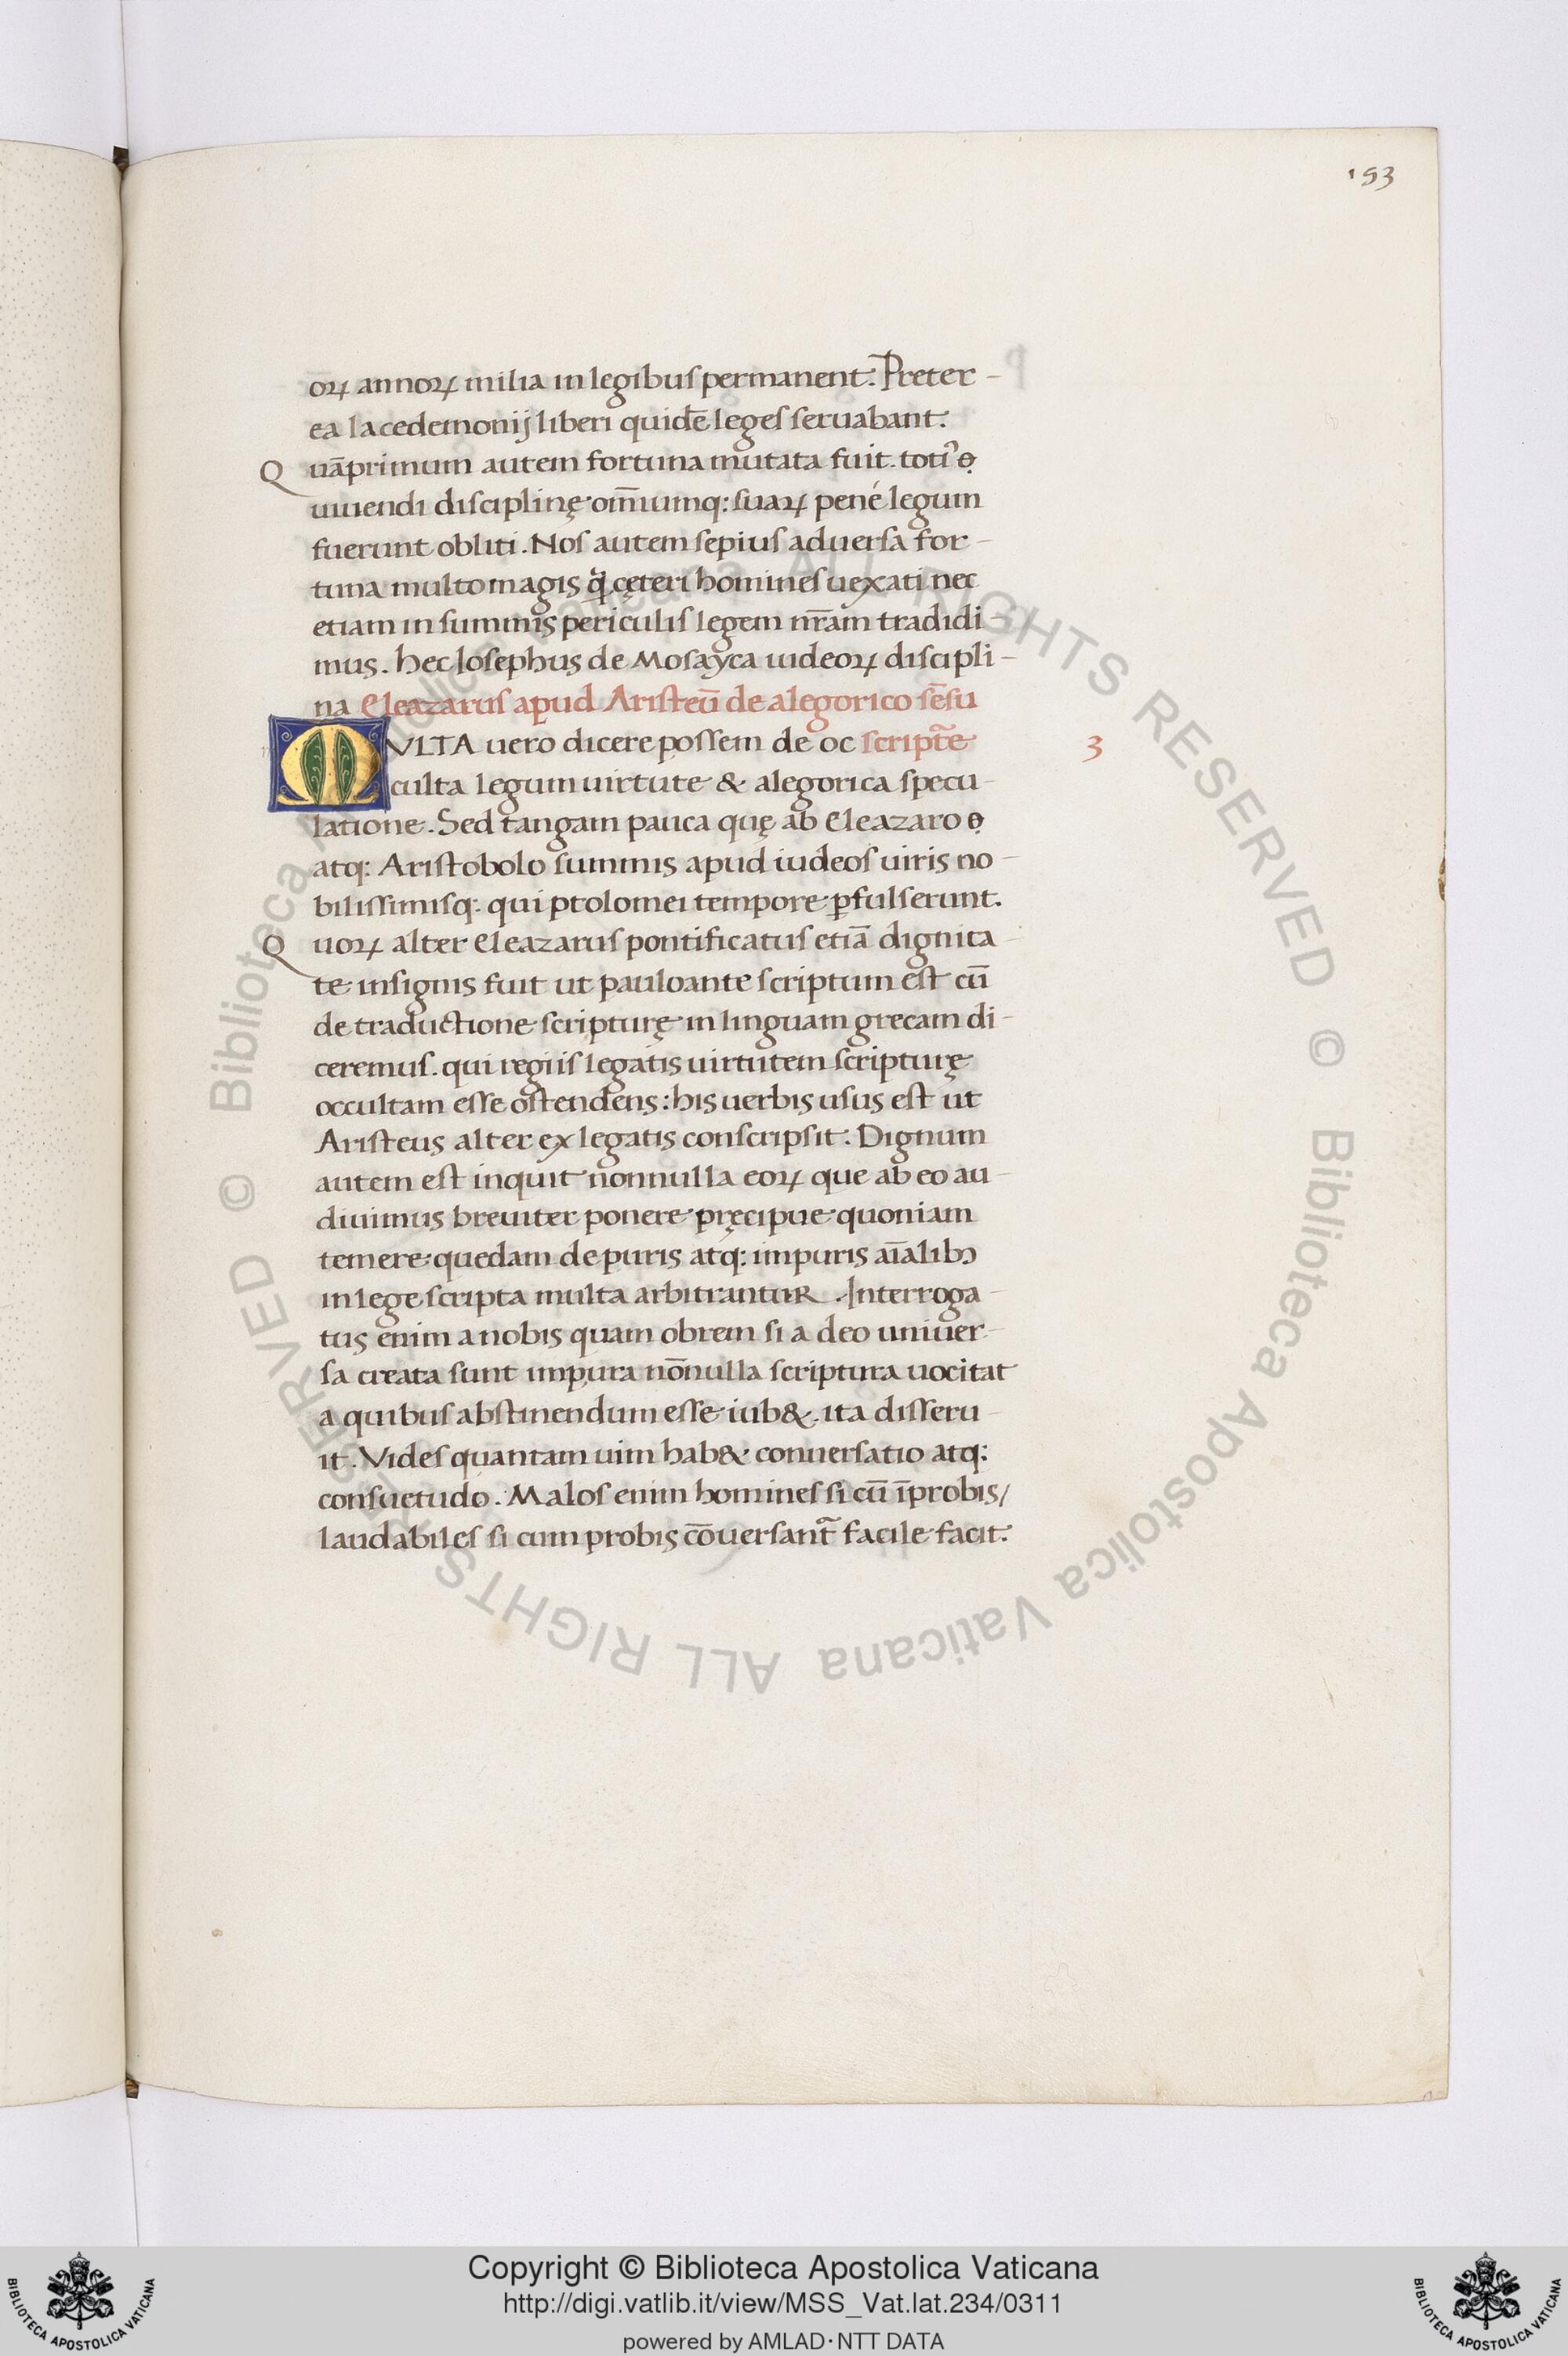 153
oꝝ annoꝝ milia in legibus permanent. Preter-
ea lacedemonij liberi quidē leges seruabant.
Quāprimum autem fortuna mutata fuit. toti᾽
uiuendi disciplinę om̄iumq: suaꝝ pené legum
fuerunt obliti. Nos autem sepius aduersa for-
tuna multo magis q̃ çeteri homines uexati nec
etiam in summis periculis legem nr̄am tradidi
mus. hec Iosephus de Mosayca uideoꝝ discipli-
na Eleazarus apud Aristeū de alegorico sēsu
MVLTA uero dicere possem de oc scriptẽ 3
culta legum uirtute & alegorica specu-
latione. Sed tangam pauca quę ab Eleazaro
atq: Aristobolo summis apud iudeos uiris no-
bilissimisq: qui ptolomei tempore ꝑfulserunt.
Quoꝝ alter Eleazarus pontificatus etiā dignita-
te insignis fuit ut pauloante scriptum est cū
de traductione scripturę in linguam grecam di-
ceremus. qui regiis legatis uirtutem scripturę
occultam esse ostendens: his uerbis usus est ut
Aristeus alter ex legatis conscripsit. Dignum
autem est inquit nonnulla eoꝝ que ab eo au-
diuimus breuiter ponere pręcipue quoniam
temere quedam de puris atq: impuris aīalibꝫ
in lege scripta multa arbitrantur. Interroga-
tus enim a nobis quam obrem si a deo uniuer-
sa creata sunt impura nōnulla scriptura uocitat
a quibus abstinendum esse iub&. ita disseru-
it. Vides quantam uim hab& conuersatio atq:
consuetudo. Malos enim homines si cū īprobis/
laudabiles si cum probis cōuersant᷈ facile facit.
© Biblioteca Apostolica Vaticana ALL RIGHTS RESERVED © Biblioteca Apostolica Vaticana ALL RIGHTS RESERVED
Copyright © Biblioteca Apostolica Vaticana
http://digi.vatlib.it/view/MSS_Vat.lat.234/0311
powered by AMLAD·NTT DATA
BIBLIOTECA APOSTOLICA VATICANA
BIBLIOTECA APOSTOLICA VATICANA